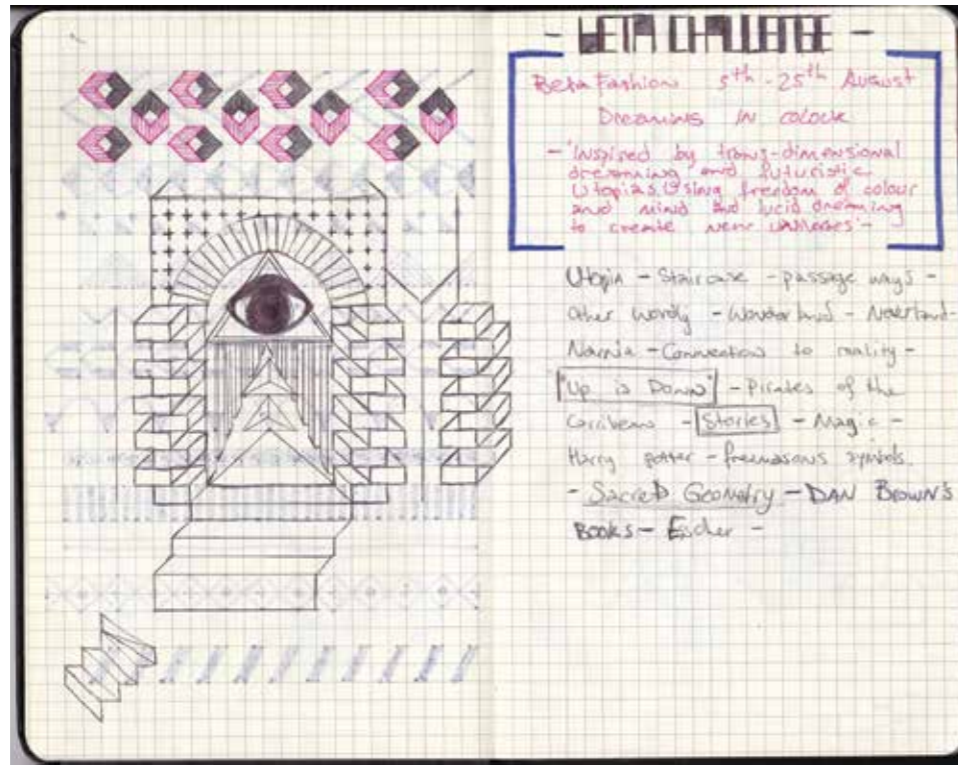 - BETA CHALLENGE -
Beta Fashion 5th - 25th August
Dreaming in colour
- 'Inspired by trans-dimensional
dreaming and futuristic
Utopias. Using freedom of colour
and mind and lucid dreaming
to create new universes' -
Utopia - Staircase - passage ways -
Other Wordly - Wonderland - Neverland -
Narnia - Connection to reality -
"Up is Down" - Pirates of the
Carribean - Stories - Magic -
Harry potter - freemasons symbols.
- Sacred Geometry - DAN BROWN'S
BOOKS - Escher -